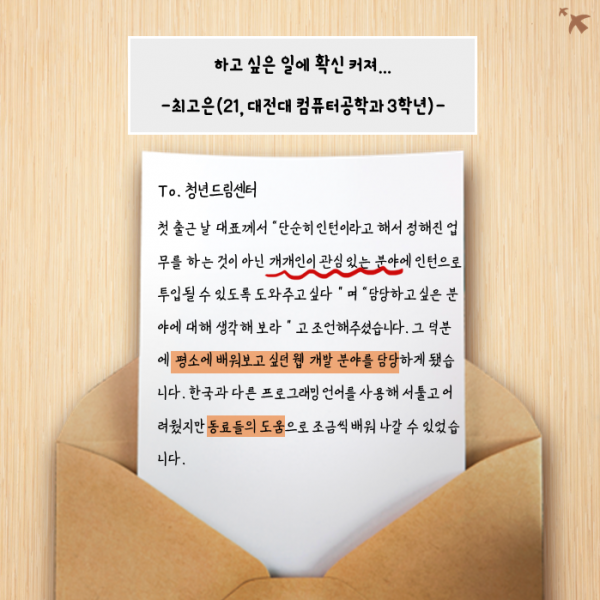 하고 싶은 일에 확신 커져...
-최고은(21, 대전대 컴퓨터공학과 3학년)-
To. 청년드림센터
첫 출근 날 대표께서 "단순히 인턴이라고 해서 정해진 업
무를 하는 것이 아닌 개개인이 관심 있는 분야에 인턴으로
투입될 수 있도록 도와주고 싶다 " 며 "담당하고 싶은 분
야에 대해 생각해 보라 " 고 조언해주셨습니다. 그 덕분
에 평소에 배워보고 싶던 웹 개발 분야를 담당하게 됐습
니다. 한국과 다른 프로그래밍 언어를 사용해 서툴고 어
려웠지만 동료들의 도움으로 조금씩 배워 나갈 수 있었습
니다.